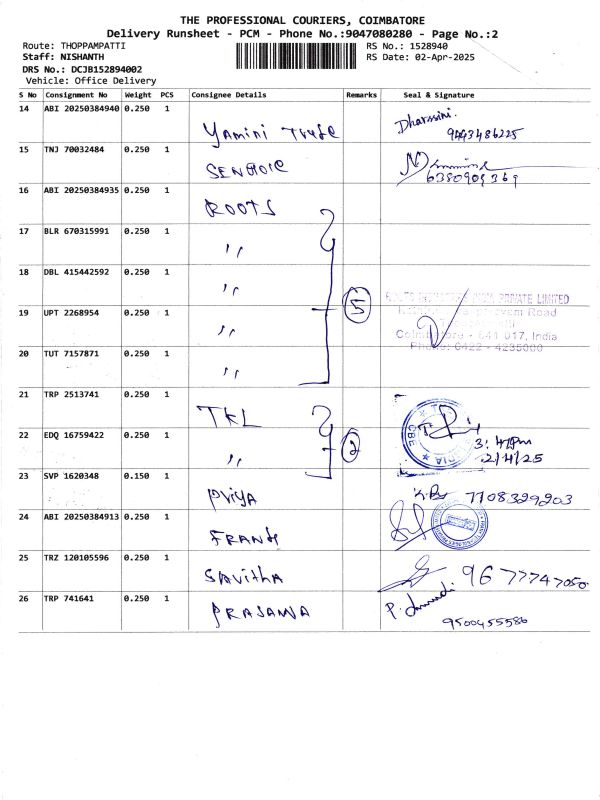 THE PROFESSIONAL COURIERS, COIMBATORE
Delivery Runsheet - PCM - Phone No.:9047080280 - Page No.:2
Route: THOPPAMPATTI RS No.: 1528940
Staff: NISHANTH RS Date: 02-Apr-2025
DRS No.: DCJB152894002
Vehicle: Office Delivery
S No Consignment No Weight PCS Consignee Details Remarks Seal & Signature
14 ABI 20250384940 0.250 1 Yamini Dharssini. 9443486225
15 TNJ 70032484 0.250 1 6380909369
16 ABI 20250384935 0.250 1 ROOTS
17 BLR 670315991 0.250 1 ''
18 DBL 415442592 0.250 1 '' 5 PRIVATE LIMITED
19 UPT 2268954 0.250 1 '' Road
Coimbatore - 641 017, India
Phone: 0422 - 4235000
20 TUT 7157871 0.250 1 ''
21 TRP 2513741 0.250 1 TKL
22 EDQ 16759422 0.250 1 '' 2 CBE 3:47pm
2/4/25
23 SVP 1620348 0.150 1 Priya 7708329203
24 ABI 20250384913 0.250 1
25 TRZ 120105596 0.250 1 Savitha 9677747050
26 TRP 741641 0.250 1 PRASANNA 9500455586